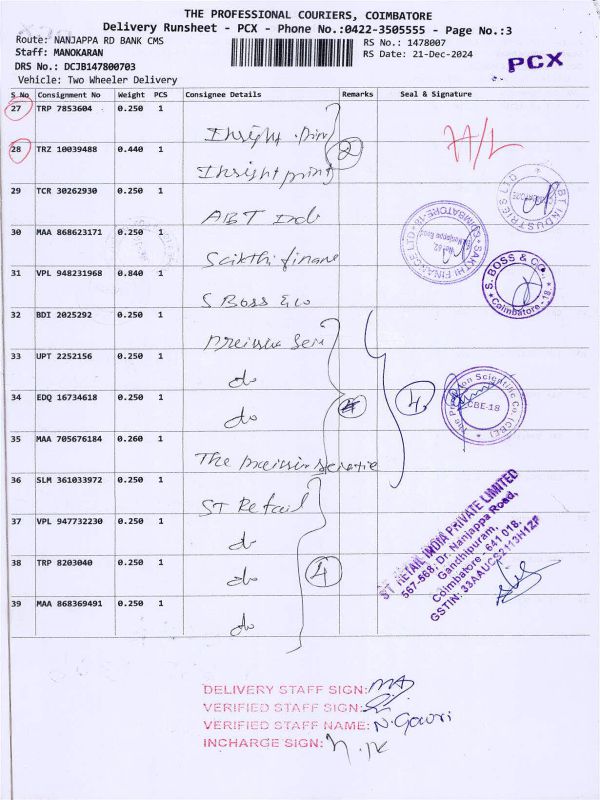 THE PROFESSIONAL COURIERS, COIMBATORE
Delivery Runsheet - PCX - Phone No.:0422-3505555 - Page No.:3
Route: NANJAPPA RD BANK CMS
RS No.: 1478007
Staff: MANOKARAN
RS Date: 21-Dec-2024
DRS No.: DCJB147800703
PCX
Vehicle: Two Wheeler Delivery
S No Consignment No Weight PCS Consignee Details Remarks Seal & Signature
27 TRP 7853604 0.250 1 Insight
28 TRZ 10039488 0.440 1 Insight print 2 H/L
29 TCR 30262930 0.250 1 ABT
ABT INDUSTRIES LTD
30 MAA 868623171 0.250 1 Sakthi finane
SAKTHI FINANCE LTD
COIMBATORE-18
31 VPL 948231968 0.840 1 S Boss & co
S. BOSS & CO.,
Coimbatore - 18
32 BDI 2025292 0.250 1
33 UPT 2252156 0.250 1 do
34 EDQ 16734618 0.250 1 do 4 4
The Precision Scientific Co. (CBE)
CBE-18
35 MAA 705676184 0.260 1 The
36 SLM 361033972 0.250 1 ST Retail
37 VPL 947732230 0.250 1 do
38 TRP 8203040 0.250 1 do 4
39 MAA 868369491 0.250 1 do
ST RETAIL INDIA PRIVATE LIMITED
567-568, Dr. Nanjappa Road,
Gandhipuram,
Coimbatore - 641 018.
DELIVERY STAFF SIGN:
VERIFIED STAFF SIGN:
VERIFIED STAFF NAME: N. Gowri
INCHARGE SIGN: